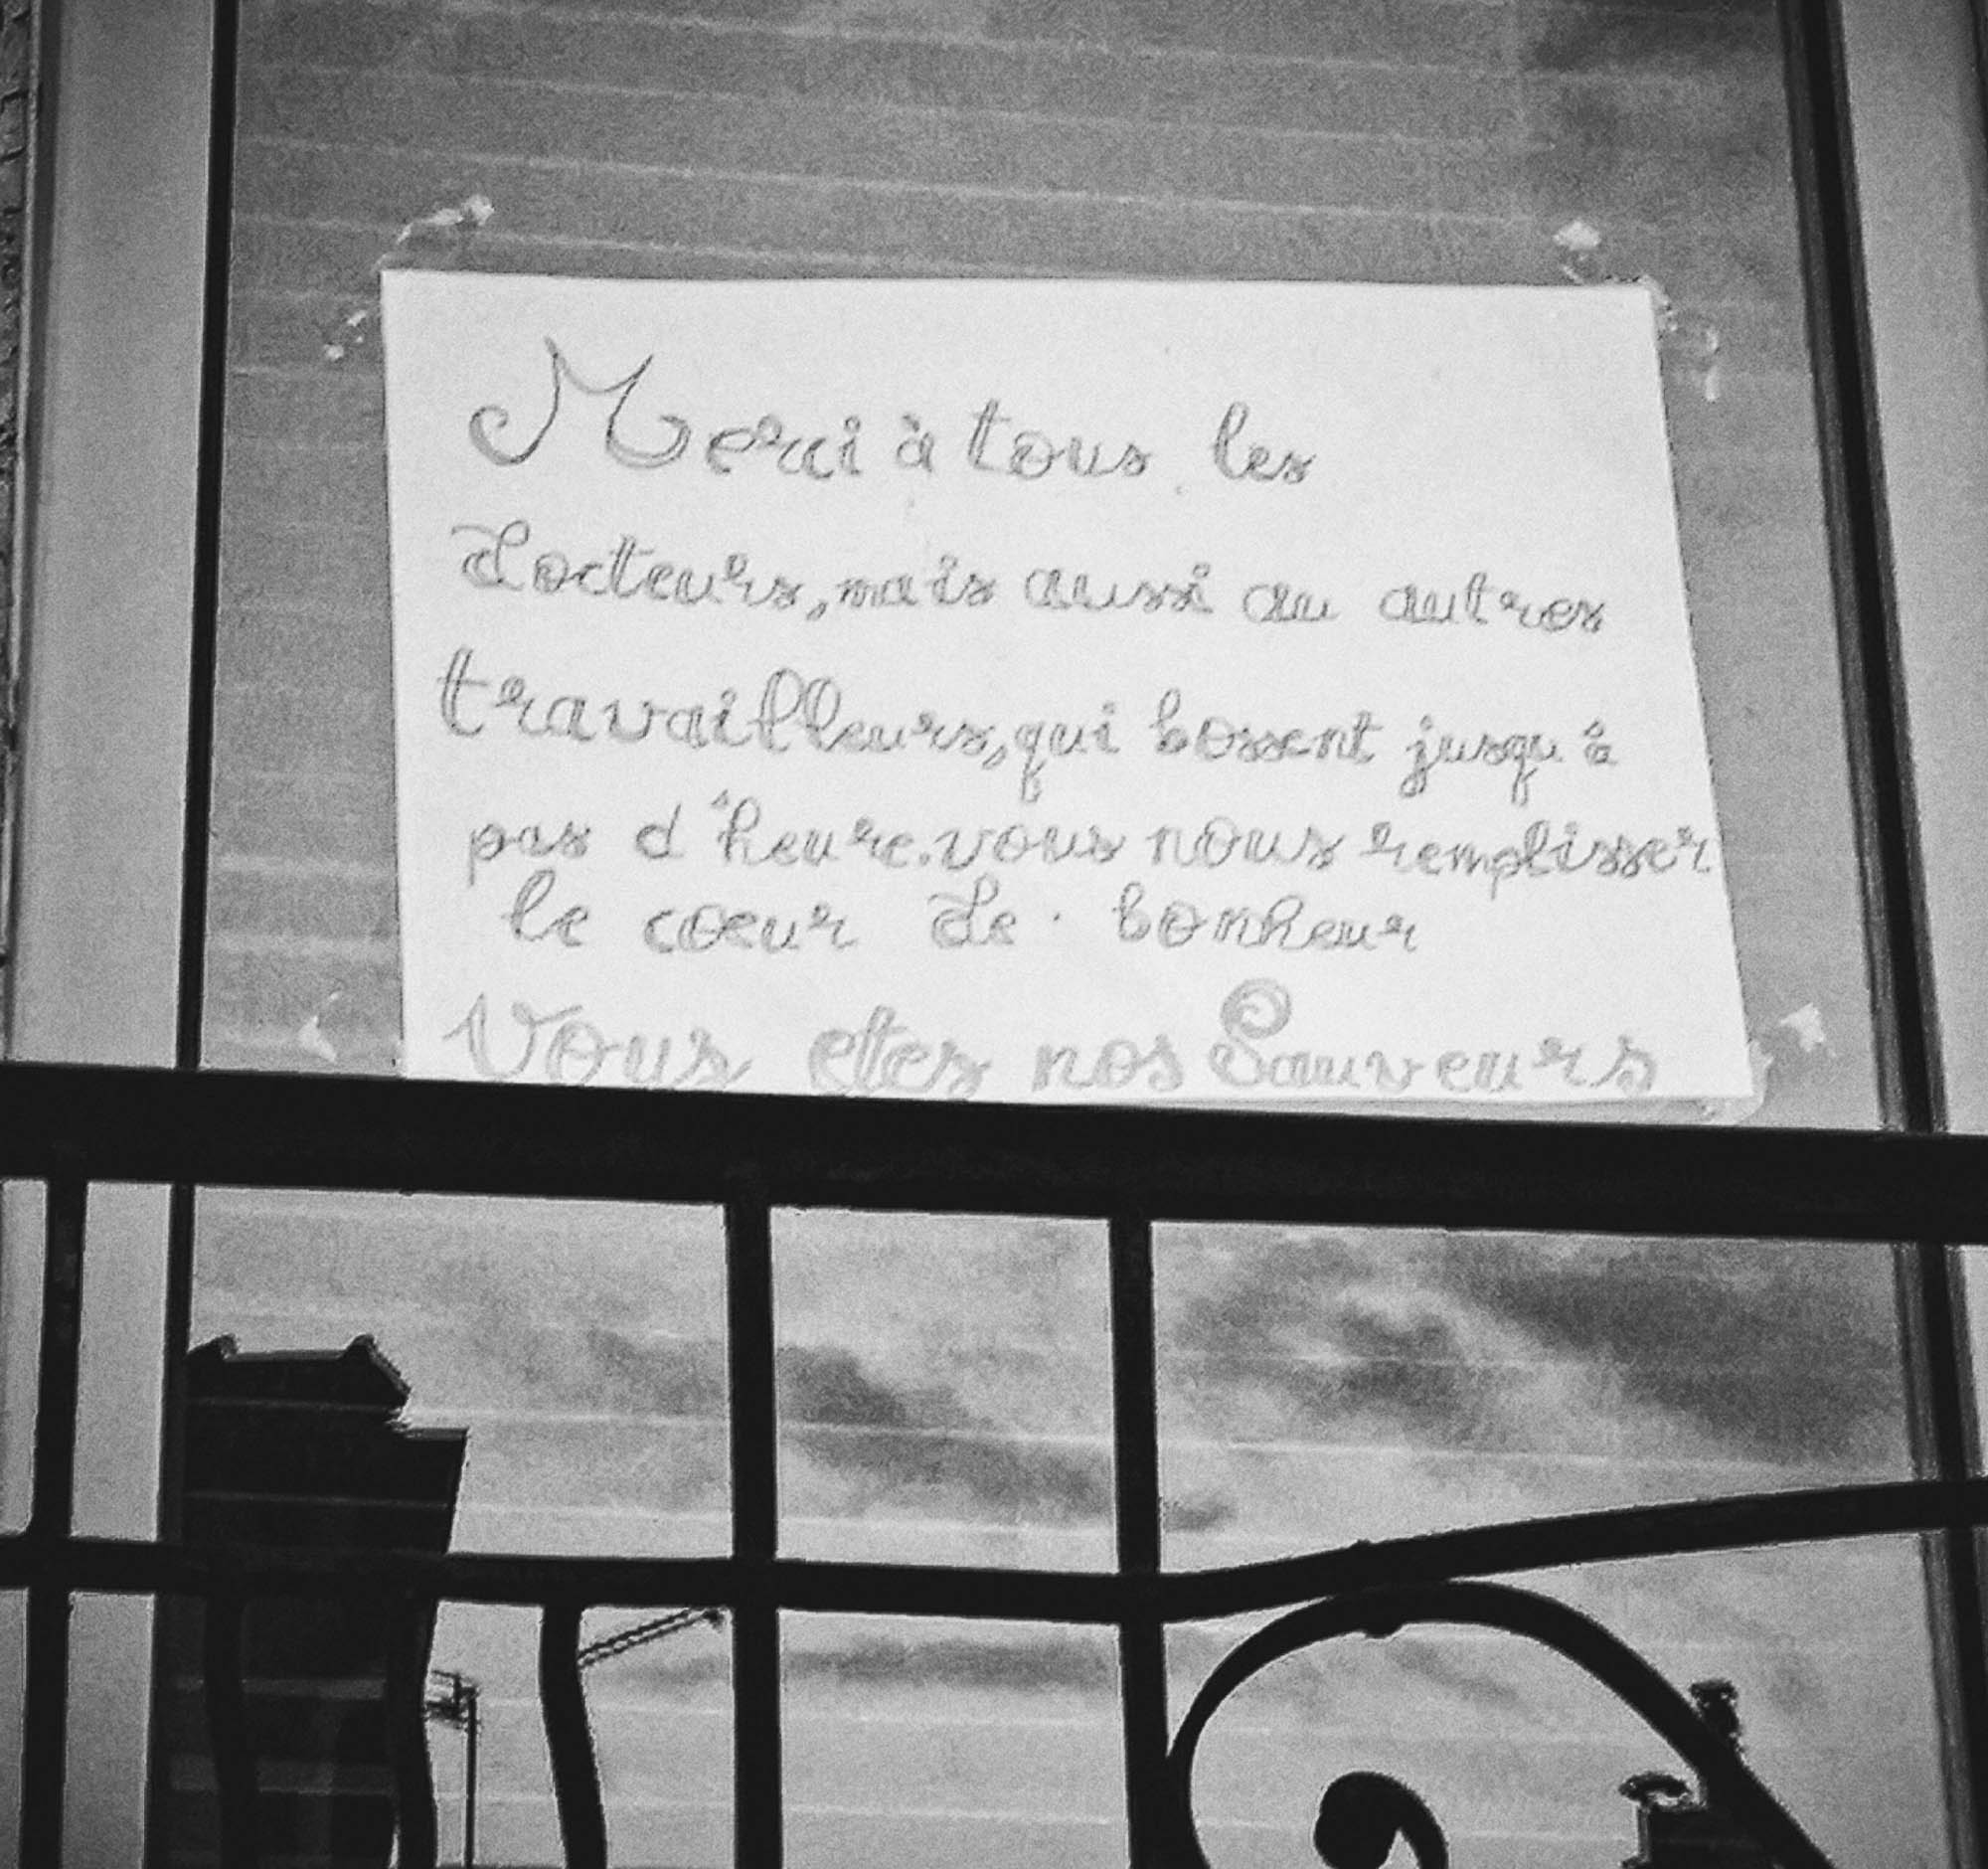 Merci à tous les
docteurs, mais aussi au autres
travailleurs, qui bossent jusqu'à
pas d'heure. vous nous remplisser
le cœur de bonheur
Vous etes nos Sauveurs